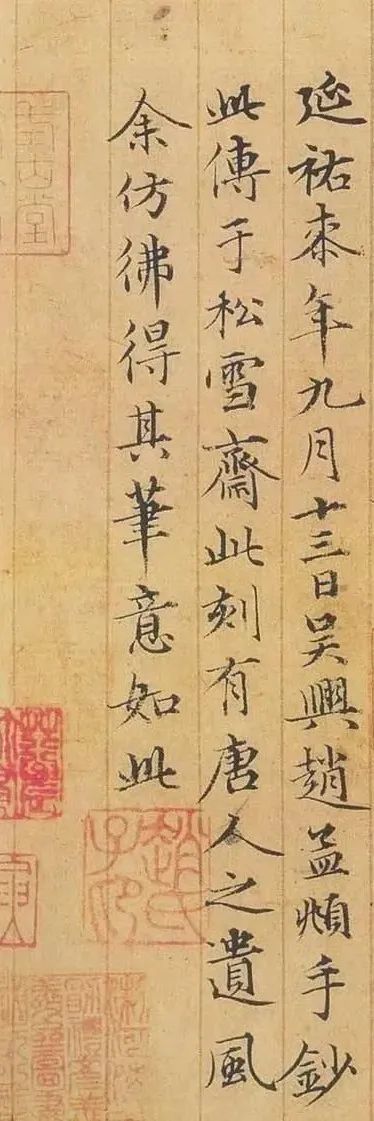 延祐桼年九月十三日吳興趙孟頫手鈔
此傳于松雪齋此刻有唐人之遺風
余仿彿得其筆意如此
趙氏子昂